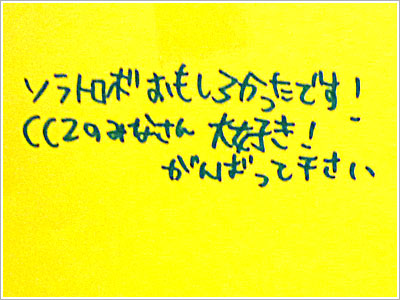 ソラトロボおもしろかったです!
CC2のみなさん 大好き!
がんばって下さい